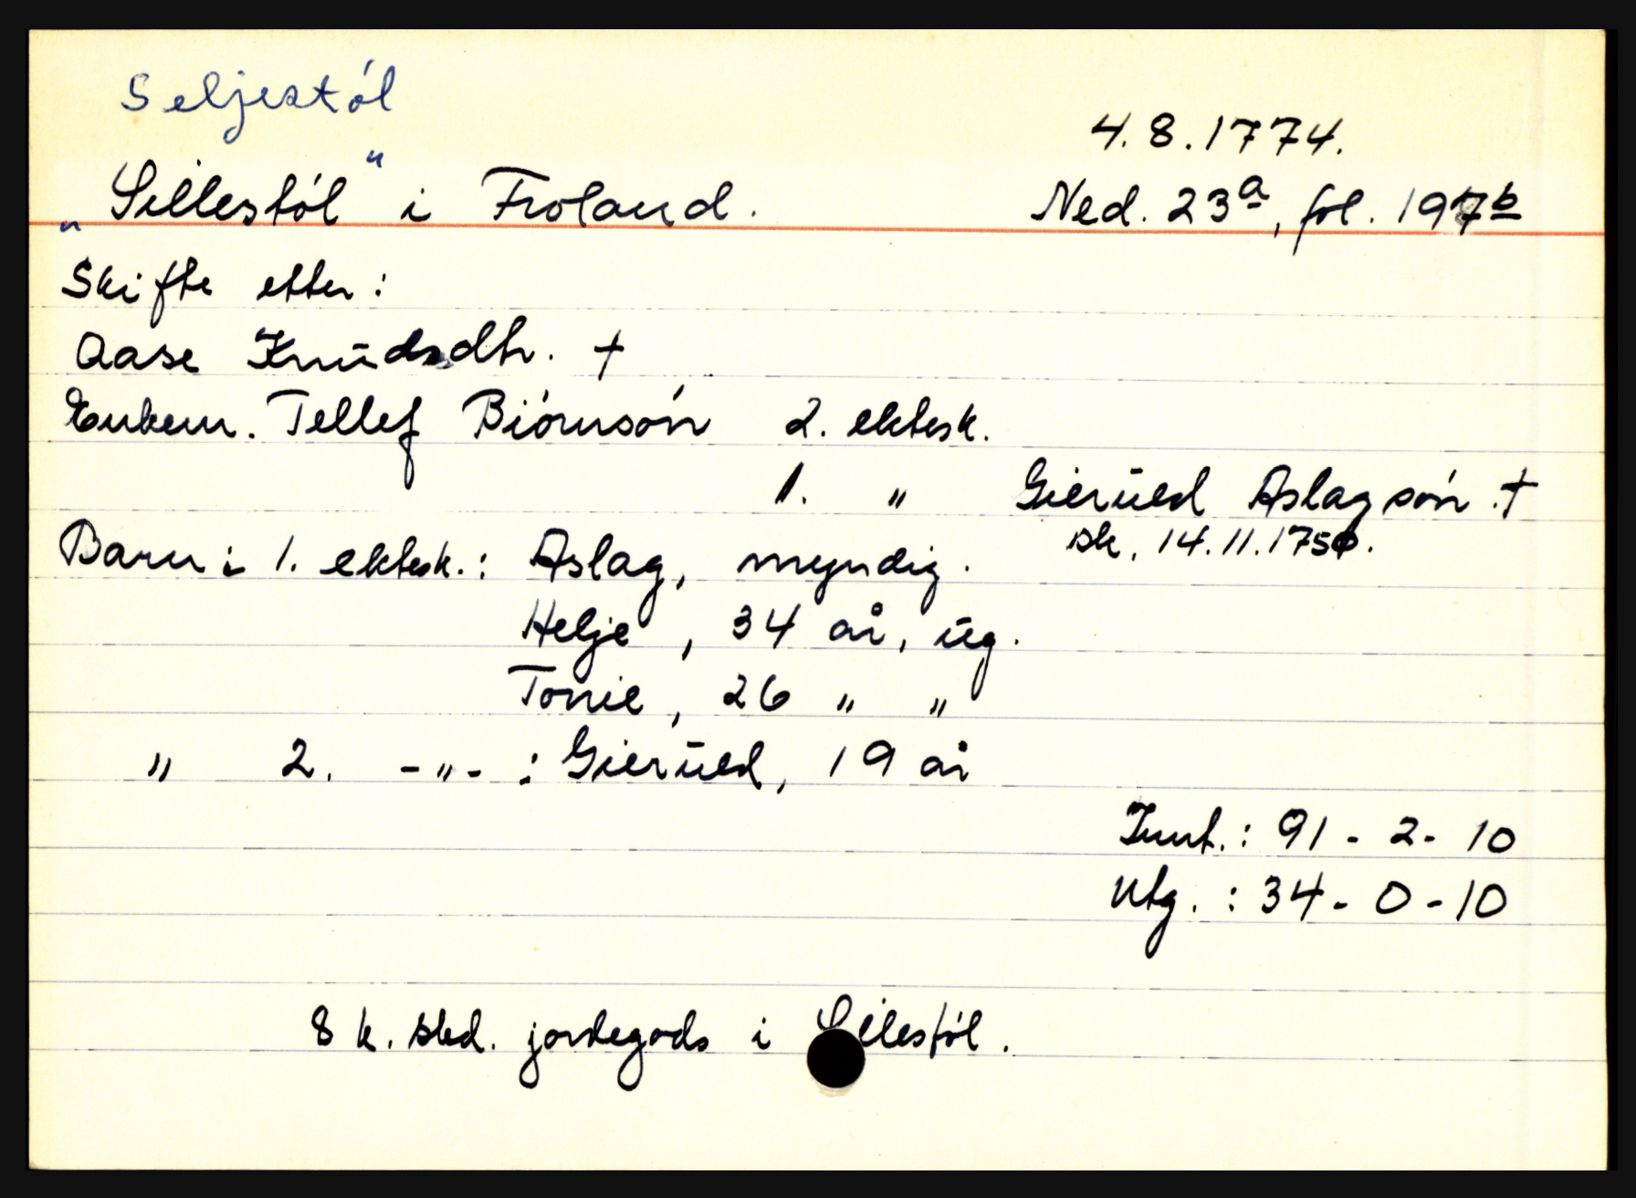 Seljestól
4.8.1774.
"Sillestól" i Froland.
Ned. 23a, fol. 197b
Skifte etter:
Aase Knudsdtr. †
Enkem. Tellef Biórnsón 2. ektesk.
1. " Gierued Aslagsón †
sk. 14.11.1750.
Barn i 1. ektesk.: Aslag, myndig.
Helje, 34 år, ug.
Tonie, 26 " "
" 2. -"- : Gierued, 19 år
Innt.: 91 - 2 - 10
Utg.: 34 - 0 - 10
8 k. skd. jordegods i Silestól.